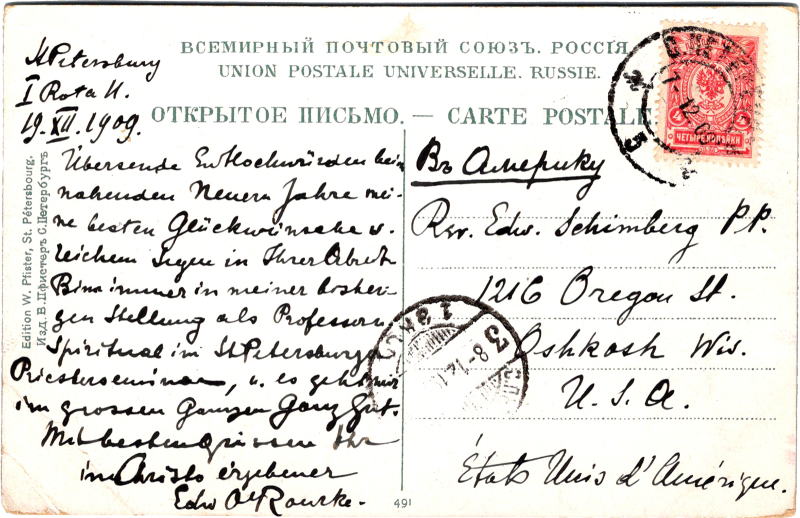 ВСЕМІРНЫЙ ПОЧТОВЫЙ СОЮЗЪ. РОССІЯ
UNION POSTALE UNIVERSELLE. RUSSIE.
ОТКРЫТОЕ ПИСЬМО. — CARTE POSTALE
St Petersburg
I Rota 11.
19. XII. 1909.
Übersende Ew Hochwürden beim
nahenden Neuen Jahre mei-
ne besten Glückwünsche u.
reichem Segen in Ihrer Arbeit
Bin immer in meiner bisheri-
gen Stellung als Professor u.
Spiritual im St Petersburger
Priesterseminar, u. es geht mir
im grossen Ganzen Ganz Gut.
Mit besten Grüssen Ihr
in Christo ergebener
Edw O'Rourke.
Въ Америку
Rev. Edw. Schimberg P.P.
1216 Oregon St.
Oshkosh Wis.
U. S. A.
États Unis d'Amérique.
ЧЕТЫРЕ КОПѢЙКИ
Edition W. Pfister, St. Pétersbourg.
Изд. В. Пфистеръ С.Петербургъ
491